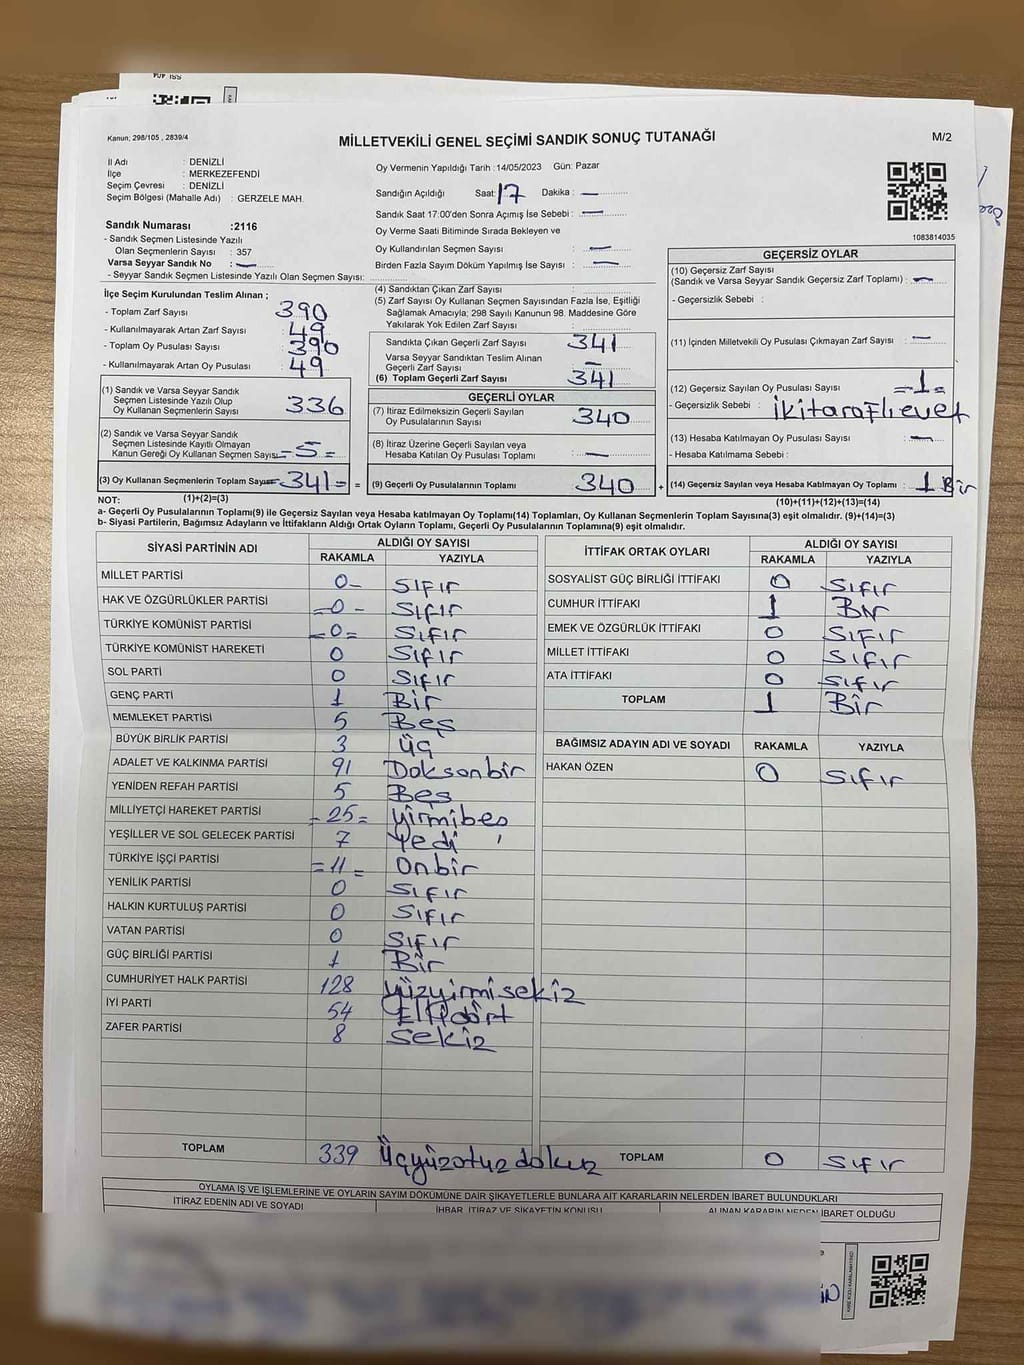 Kanun; 298/105 , 2839/4
MİLLETVEKİLİ GENEL SEÇİMİ SANDIK SONUÇ TUTANAĞI
M/2
İl Adı : DENİZLİ
İlçe : MERKEZEFENDİ
Seçim Çevresi : DENİZLİ
Seçim Bölgesi (Mahalle Adı) : GERZELE MAH.
Oy Vermenin Yapıldığı Tarih :14/05/2023 Gün: Pazar
Sandığın Açıldığı Saat: 17 Dakika : —
Sandık Saat 17:00'den Sonra Açımış İse Sebebi : —
Oy Verme Saati Bitiminde Sırada Bekleyen ve
Oy Kullandırılan Seçmen Sayısı : —
Birden Fazla Sayım Döküm Yapılmış İse Sayısı : —
1083814035
Sandık Numarası :2116
- Sandık Seçmen Listesinde Yazılı
Olan Seçmenlerin Sayısı : 357
Varsa Seyyar Sandık No : —
- Seyyar Sandık Seçmen Listesinde Yazılı Olan Seçmen Sayısı:
İlçe Seçim Kurulundan Teslim Alınan ;
- Toplam Zarf Sayısı 390
- Kullanılmayarak Artan Zarf Sayısı 49
- Toplam Oy Pusulası Sayısı 390
- Kullanılmayarak Artan Oy Pusulası 49
(1) Sandık ve Varsa Seyyar Sandık
Seçmen Listesinde Yazılı Olup
Oy Kullanan Seçmenlerin Sayısı 336
(2) Sandık ve Varsa Seyyar Sandık
Seçmen Listesinde Kayıtlı Olmayan
Kanun Gereği Oy Kullanan Seçmen Sayısı =5=
(3) Oy Kullanan Seçmenlerin Toplam Sayısı =341=
(1)+(2)=(3)
(4) Sandıktan Çıkan Zarf Sayısı :
(5) Zarf Sayısı Oy Kullanan Seçmen Sayısından Fazla İse, Eşitliği
Sağlamak Amacıyla; 298 Sayılı Kanunun 98. Maddesine Göre
Yakılarak Yok Edilen Zarf Sayısı :
Sandıkta Çıkan Geçerli Zarf Sayısı 341
Varsa Seyyar Sandıktan Teslim Alınan
Geçerli Zarf Sayısı —
(6) Toplam Geçerli Zarf Sayısı 341
GEÇERLİ OYLAR
(7) İtiraz Edilmeksizin Geçerli Sayılan
Oy Pusulalarının Sayısı 340
(8) İtiraz Üzerine Geçerli Sayılan veya
Hesaba Katılan Oy Pusulası Toplamı —
= (9) Geçerli Oy Pusulalarının Toplamı 340
GEÇERSİZ OYLAR
(10) Geçersiz Zarf Sayısı
(Sandık ve Varsa Seyyar Sandık Geçersiz Zarf Toplamı) : —
- Geçersizlik Sebebi :
(11) İçinden Milletvekili Oy Pusulası Çıkmayan Zarf Sayısı : —
(12) Geçersiz Sayılan Oy Pusulası Sayısı =1=
- Geçersizlik Sebebi : iki taraflı evet
(13) Hesaba Katılmayan Oy Pusulası Sayısı : —
- Hesaba Katılmama Sebebi :
+ (14) Geçersiz Sayılan veya Hesaba Katılmayan Oy Toplamı : 1 Bir
(10)+(11)+(12)+(13)=(14)
NOT:
a- Geçerli Oy Pusulalarının Toplamı(9) ile Geçersiz Sayılan veya Hesaba katılmayan Oy Toplamı(14) Toplamları, Oy Kullanan Seçmenlerin Toplam Sayısına(3) eşit olmalıdır. (9)+(14)=(3)
b- Siyasi Partilerin, Bağımsız Adayların ve İttifakların Aldığı Ortak Oyların Toplamı, Geçerli Oy Pusulalarının Toplamına(9) eşit olmalıdır.
SİYASİ PARTİNİN ADI
ALDIĞI OY SAYISI
RAKAMLA YAZIYLA
MİLLET PARTİSİ 0- Sıfır
HAK VE ÖZGÜRLÜKLER PARTİSİ =0- Sıfır
TÜRKİYE KOMÜNİST PARTİSİ =0= Sıfır
TÜRKİYE KOMÜNİST HAREKETİ 0 Sıfır
SOL PARTİ 0 Sıfır
GENÇ PARTİ 1 Bir
MEMLEKET PARTİSİ 5 Beş
BÜYÜK BİRLİK PARTİSİ 3 Üç
ADALET VE KALKINMA PARTİSİ 91 Doksanbir
YENİDEN REFAH PARTİSİ 5 Beş
MİLLİYETÇİ HAREKET PARTİSİ -25= Yirmibeş
YEŞİLLER VE SOL GELECEK PARTİSİ 7 Yedi
TÜRKİYE İŞÇİ PARTİSİ =11= Onbir
YENİLİK PARTİSİ 0 Sıfır
HALKIN KURTULUŞ PARTİSİ 0 Sıfır
VATAN PARTİSİ 0 Sıfır
GÜÇ BİRLİĞİ PARTİSİ 1 Bir
CUMHURİYET HALK PARTİSİ 128 Yüzyirmisekiz
İYİ PARTİ 54 Ellidört
ZAFER PARTİSİ 8 Sekiz
TOPLAM 339 Üçyüzotuzdokuz
İTTİFAK ORTAK OYLARI
ALDIĞI OY SAYISI
RAKAMLA YAZIYLA
SOSYALİST GÜÇ BİRLİĞİ İTTİFAKI 0 Sıfır
CUMHUR İTTİFAKI 1 Bir
EMEK VE ÖZGÜRLÜK İTTİFAKI 0 Sıfır
MİLLET İTTİFAKI 0 Sıfır
ATA İTTİFAKI 0 Sıfır
TOPLAM 1 Bir
BAĞIMSIZ ADAYIN ADI VE SOYADI RAKAMLA YAZIYLA
HAKAN ÖZEN 0 Sıfır
TOPLAM 0 Sıfır
OYLAMA İŞ VE İŞLEMLERİNE VE OYLARIN SAYIM DÖKÜMÜNE DAİR ŞİKAYETLERLE BUNLARA AİT KARARLARIN NELERDEN İBARET BULUNDUKLARI
İTİRAZ EDENİN ADI VE SOYADI İHBAR, İTİRAZ VE ŞİKAYETİN KONUSU ALINAN KARARIN NEDEN İBARET OLDUĞU